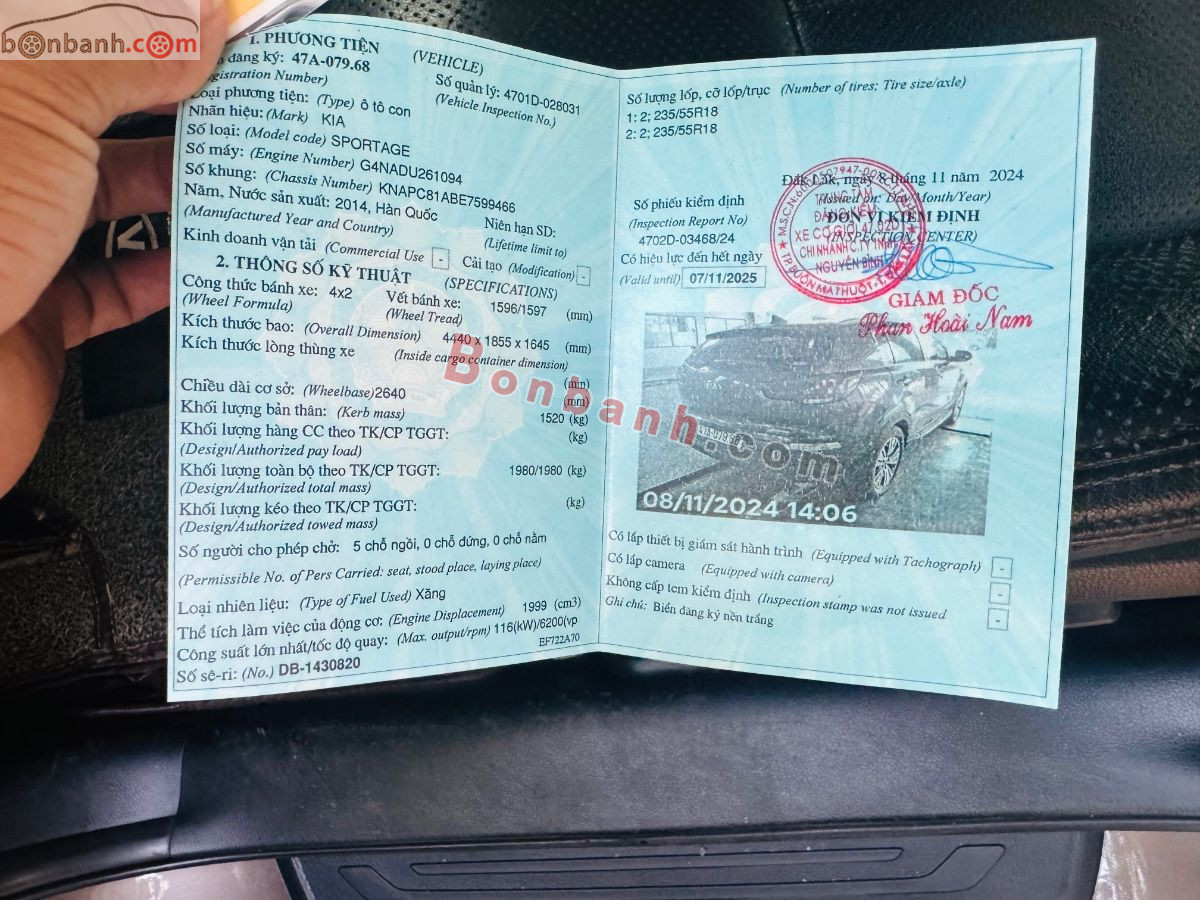 bonbanh.com
1. PHƯƠNG TIỆN (VEHICLE)
đăng ký: 47A-079.68 Số quản lý: 4701D-028031
(Registration Number) (Vehicle Inspection No.)
Loại phương tiện: (Type) ô tô con
Nhãn hiệu: (Mark) KIA
Số loại: (Model code) SPORTAGE
Số máy: (Engine Number) G4NADU261094
Số khung: (Chassis Number) KNAPC81ABE7599466
Năm, Nước sản xuất: 2014, Hàn Quốc Niên hạn SD:
(Manufactured Year and Country) (Lifetime limit to)
Kinh doanh vận tải (Commercial Use - Cải tạo (Modification) -
2. THÔNG SỐ KỸ THUẬT (SPECIFICATIONS)
Công thức bánh xe: 4x2 Vết bánh xe: 1596/1597 (mm)
(Wheel Formula) (Wheel Tread)
Kích thước bao: (Overall Dimension) 4440 x 1855 x 1645 (mm)
Kích thước lòng thùng xe (Inside cargo container dimension)
(mm)
Chiều dài cơ sở: (Wheelbase)2640 (mm)
Khối lượng bản thân: (Kerb mass) 1520 (kg)
Khối lượng hàng CC theo TK/CP TGGT: (kg)
(Design/Authorized pay load)
Khối lượng toàn bộ theo TK/CP TGGT: 1980/1980 (kg)
(Design/Authorized total mass)
Khối lượng kéo theo TK/CP TGGT: (kg)
(Design/Authorized towed mass)
Số người cho phép chở: 5 chỗ ngồi, 0 chỗ đứng, 0 chỗ nằm
(Permissible No. of Pers Carried: seat, stood place, laying place)
Loại nhiên liệu: (Type of Fuel Used) Xăng
Thể tích làm việc của động cơ: (Engine Displacement) 1999 (cm3)
Công suất lớn nhất/tốc độ quay: (Max. output/rpm) 116(kW)/6200(vp
EF722A70
Số sê-ri: (No.) DB-1430820
Số lượng lốp, cỡ lốp/trục (Number of tires; Tire size/axle)
1: 2; 235/55R18
2: 2; 235/55R18
Đắk Lắk, ngày 8 tháng 11 năm 2024
(Issued on: Day/Month/Year)
Số phiếu kiểm định ĐƠN VỊ KIỂM ĐỊNH
(Inspection Report No) (INSPECTION CENTER)
4702D-03468/24
Có hiệu lực đến hết ngày
(Valid until) 07/11/2025
TRUNG TÂM
ĐĂNG KIỂM
XE CƠ GIỚI 47.02D
CHI NHÁNH C.TY TNHH
NGUYÊN BÌNH
TP.BUÔN MA THUỘT
GIÁM ĐỐC
Phan Hoài Nam
Bonbanh.com
08/11/2024 14:06
Có lắp thiết bị giám sát hành trình (Equipped with Tachograph) -
Có lắp camera (Equipped with camera) -
Không cấp tem kiểm định (Inspection stamp was not issued -
Ghi chú: Biển đăng ký nền trắng